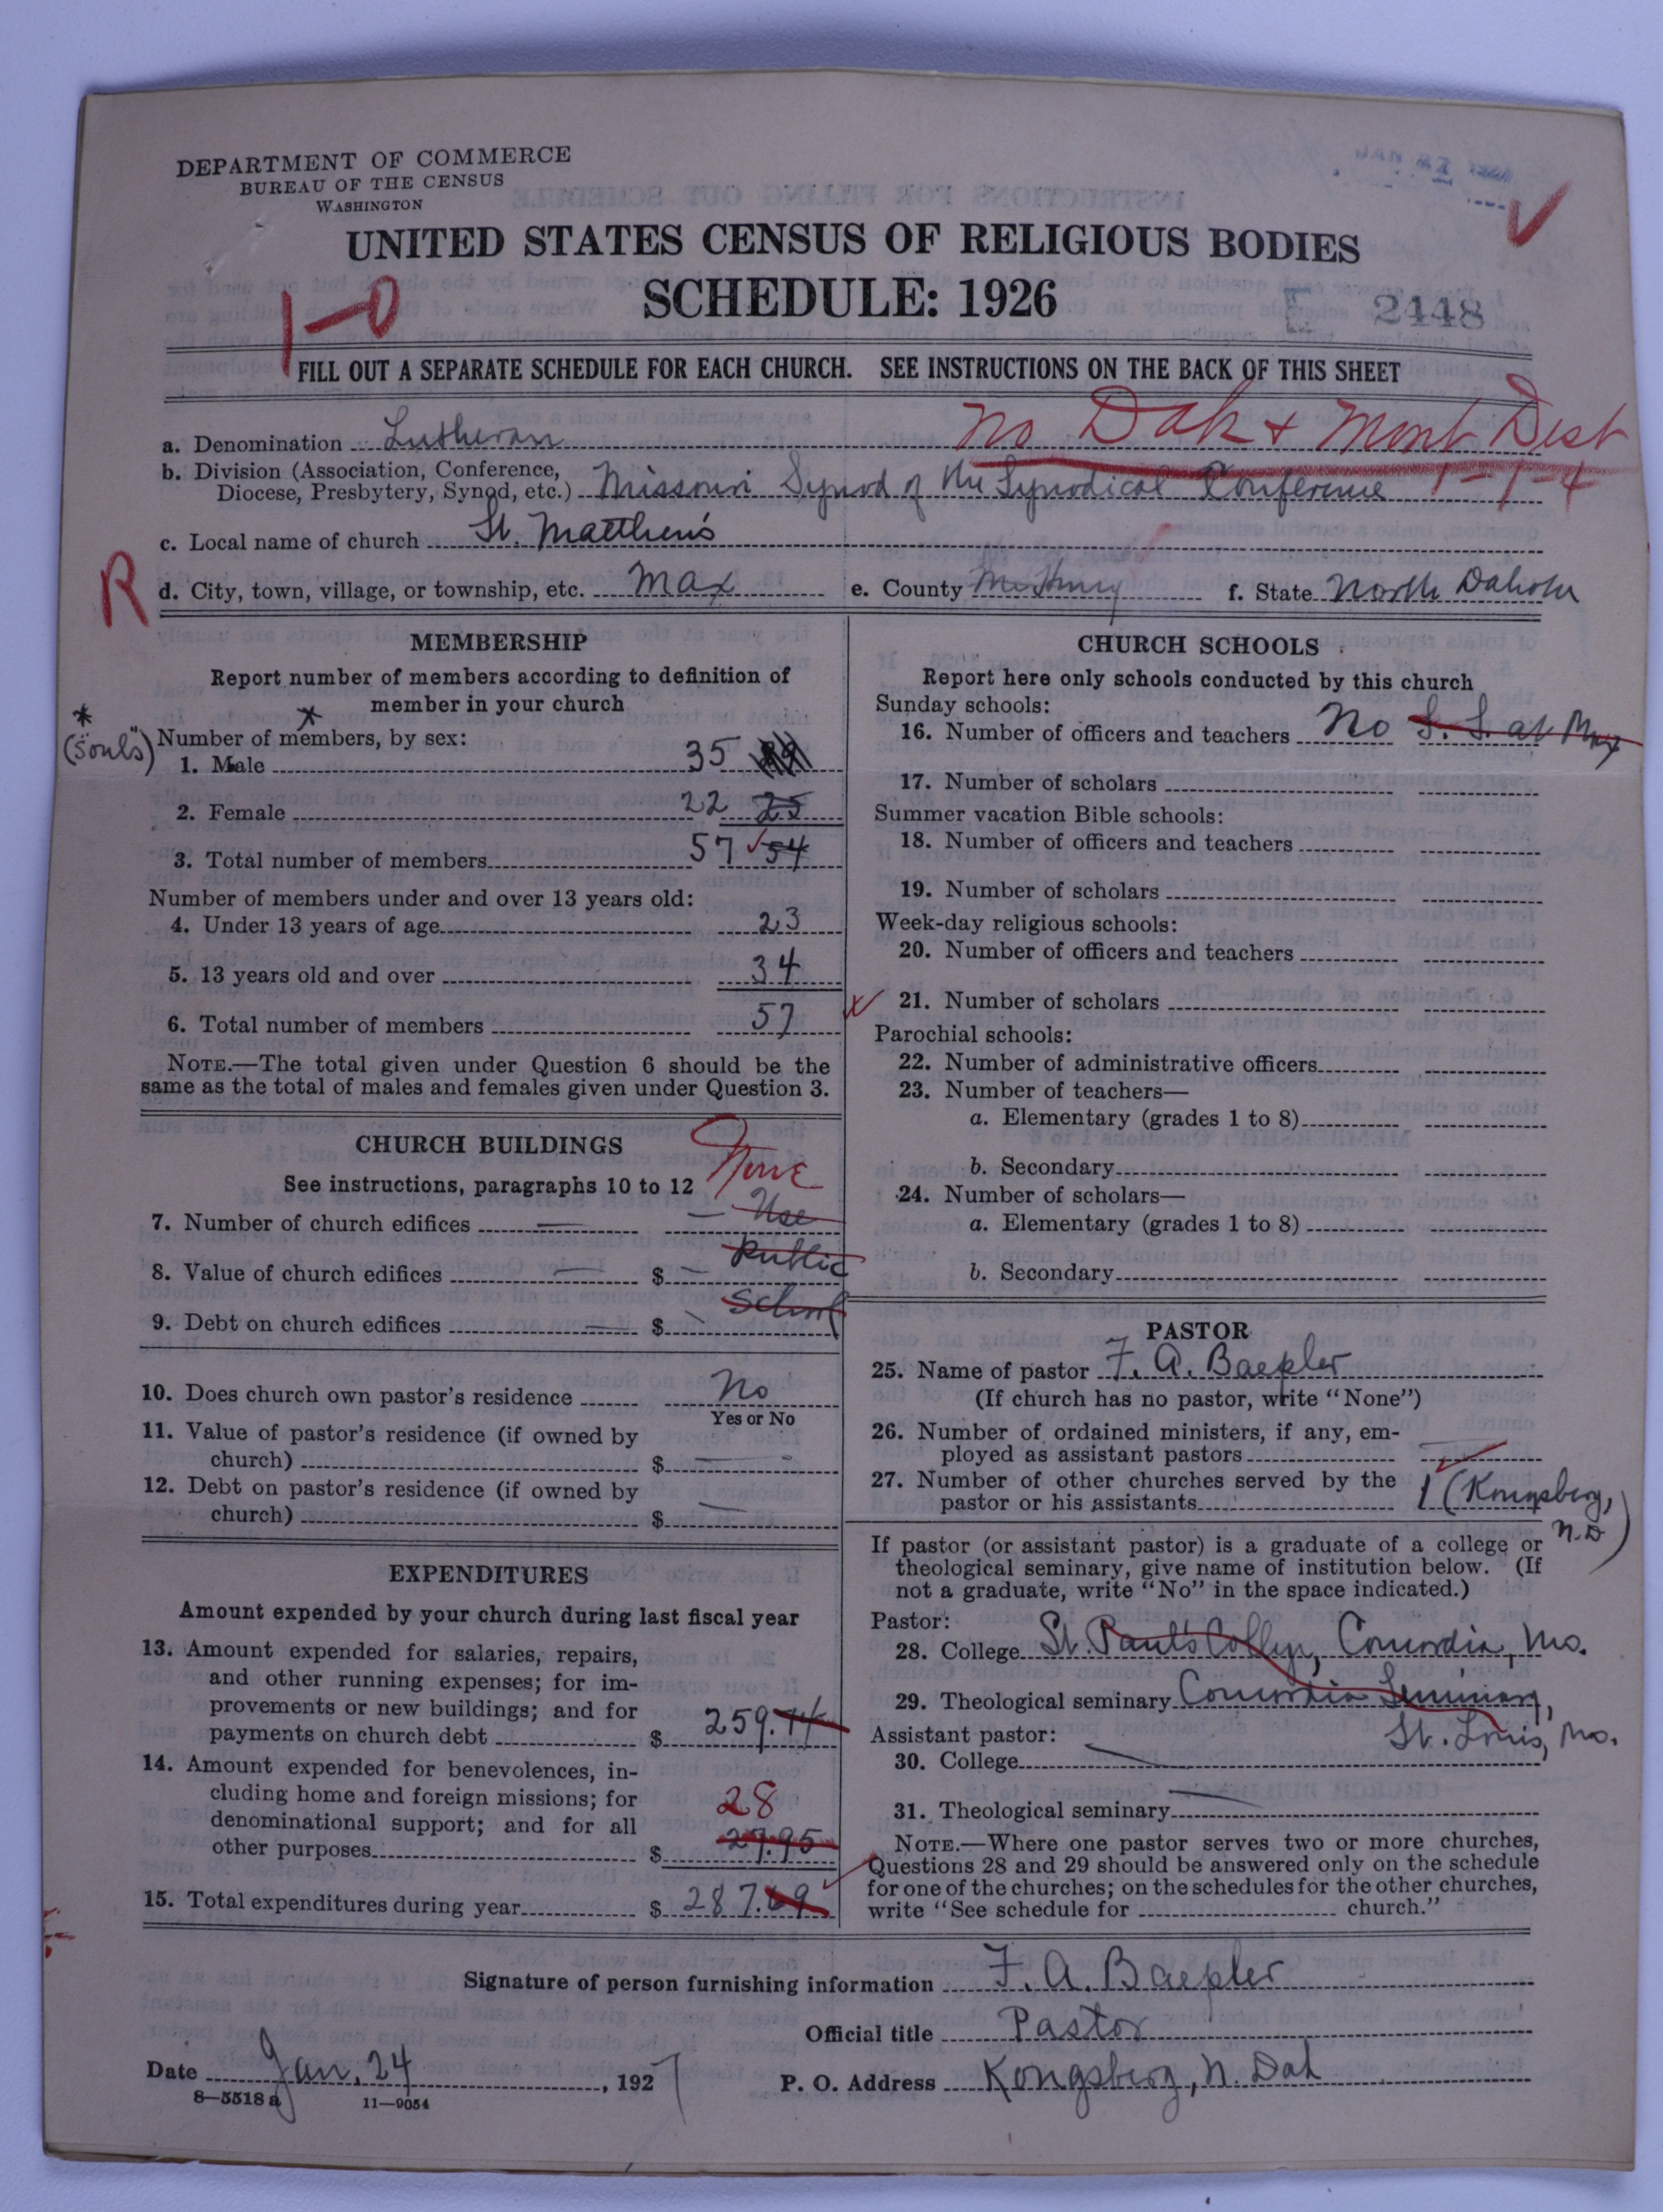 DEPARTMENT OF COMMERCE
BUREAU OF THE CENSUS
WASHINGTON
UNITED STATES CENSUS OF RELIGIOUS BODIES
SCHEDULE: 1926
1-0
2448
FILL OUT A SEPARATE SCHEDULE FOR EACH CHURCH. SEE INSTRUCTIONS ON THE BACK OF THIS SHEET
No Dak + Mont Dist
a. Denomination Lutheran
b. Division (Association, Conference,
Diocese, Presbytery, Synod, etc.) Missouri Synod of the Synodical Conference 1-1-4
c. Local name of church St. Matthew's
R
d. City, town, village, or township, etc. Max e. County McHenry f. State North Dakota
MEMBERSHIP
Report number of members according to definition of
member in your church
* ("souls")
Number of members, by sex:
1. Male 35
2. Female 22 25
3. Total number of members 57 54
Number of members under and over 13 years old:
4. Under 13 years of age 23
5. 13 years old and over 34
6. Total number of members 57
NOTE.—The total given under Question 6 should be the
same as the total of males and females given under Question 3.
CHURCH BUILDINGS
None
See instructions, paragraphs 10 to 12
7. Number of church edifices — — Use
8. Value of church edifices — $ — Public
9. Debt on church edifices — $ — School
10. Does church own pastor's residence No
Yes or No
11. Value of pastor's residence (if owned by
church) $ —
12. Debt on pastor's residence (if owned by
church) $ —
EXPENDITURES
Amount expended by your church during last fiscal year
13. Amount expended for salaries, repairs,
and other running expenses; for im-
provements or new buildings; and for
payments on church debt $ 259.74
14. Amount expended for benevolences, in-
cluding home and foreign missions; for
denominational support; and for all
28
other purposes $ 27.95
15. Total expenditures during year $ 287.69
CHURCH SCHOOLS
Report here only schools conducted by this church
Sunday schools:
16. Number of officers and teachers No S. S. at Max
17. Number of scholars
Summer vacation Bible schools:
18. Number of officers and teachers
19. Number of scholars
Week-day religious schools:
20. Number of officers and teachers
21. Number of scholars
Parochial schools:
22. Number of administrative officers
23. Number of teachers—
a. Elementary (grades 1 to 8)
b. Secondary
24. Number of scholars—
a. Elementary (grades 1 to 8)
b. Secondary
PASTOR
25. Name of pastor F. A. Baepler
(If church has no pastor, write "None")
26. Number of ordained ministers, if any, em-
ployed as assistant pastors —
27. Number of other churches served by the
pastor or his assistants 1 (Kongsberg,
N.D)
If pastor (or assistant pastor) is a graduate of a college or
theological seminary, give name of institution below. (If
not a graduate, write "No" in the space indicated.)
Pastor:
28. College St. Paul's College, Concordia, Mo.
29. Theological seminary Concordia Seminary,
St. Louis, Mo.
Assistant pastor:
30. College —
31. Theological seminary —
NOTE.—Where one pastor serves two or more churches,
Questions 28 and 29 should be answered only on the schedule
for one of the churches; on the schedules for the other churches,
write "See schedule for church."
Signature of person furnishing information F. A. Baepler
Official title Pastor
Date Jan. 24, 1927 P. O. Address Kongsberg, N. Dak
8-5518a 11-9054